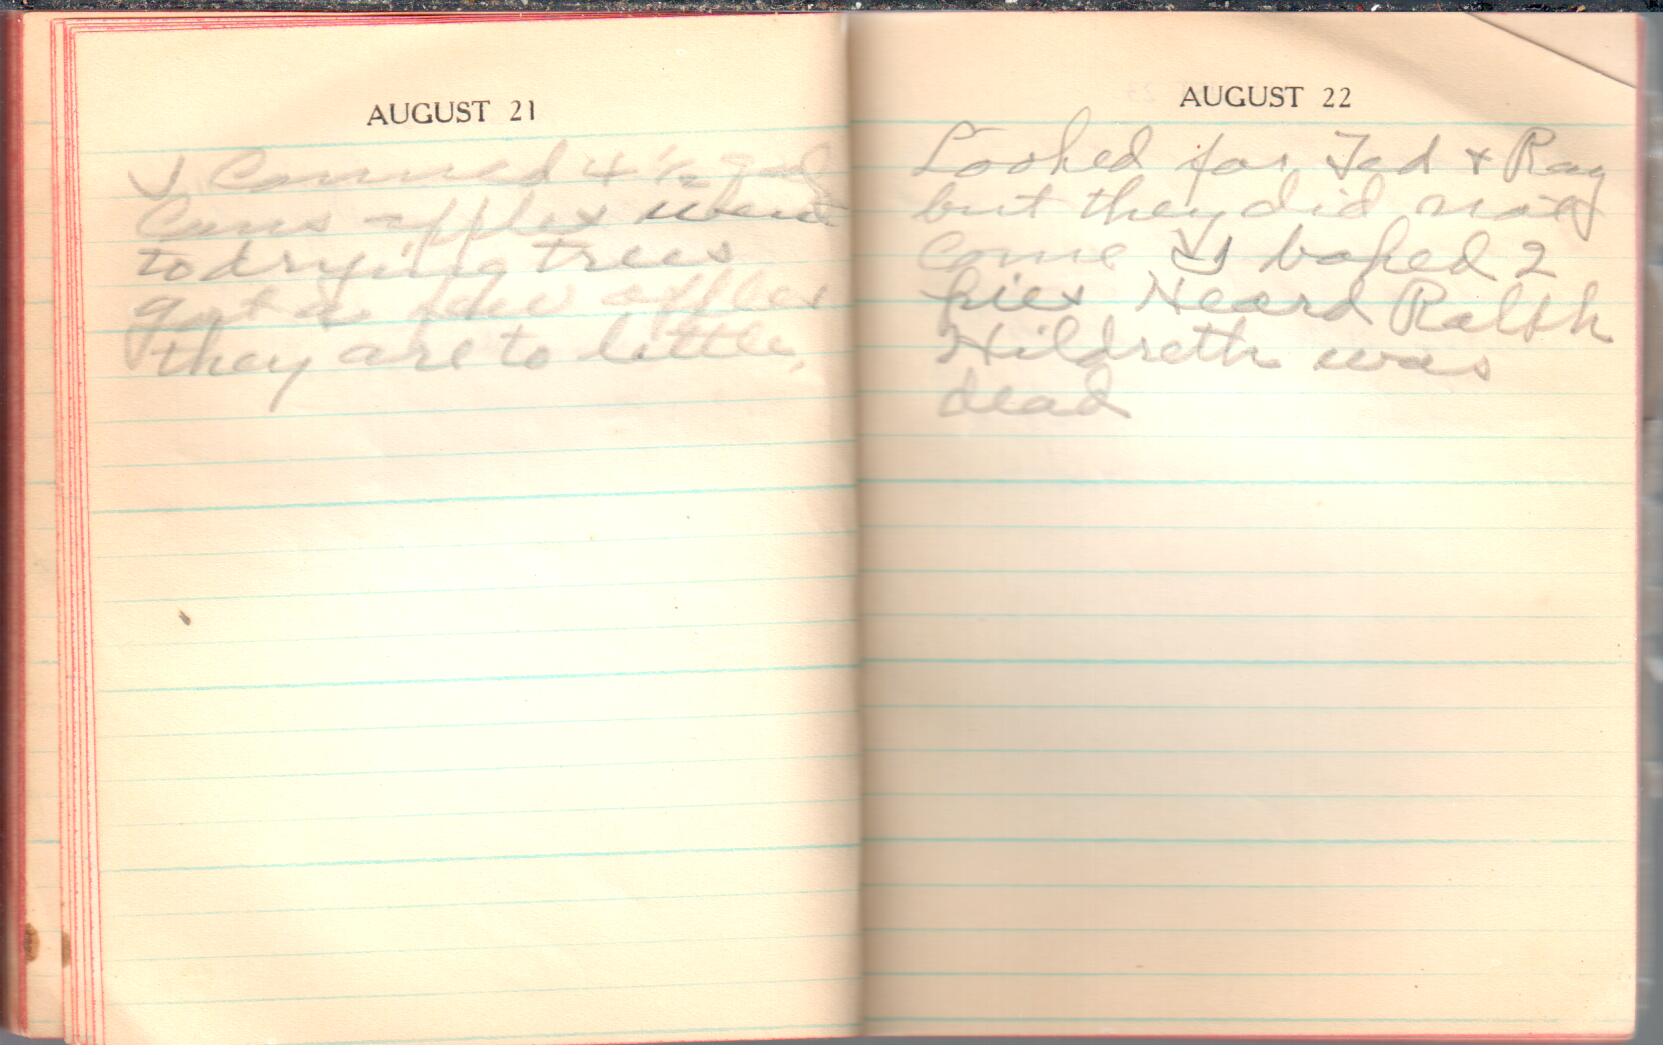 AUGUST 21
I Canned 4 1/2 gal
Cans apples went
to drying trees
got a few apples
they are to little.
AUGUST 22
Looked for Ted & Ray
but they did not
come I baked 2
pies Heard Ralph
Hildreth was
dead